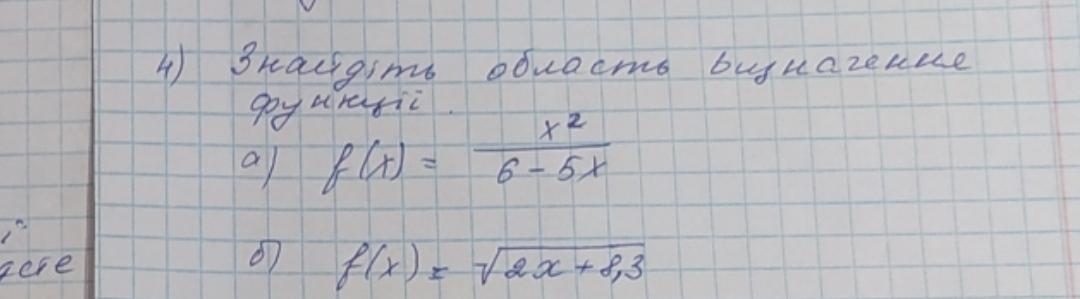 4) Знайдіть область визначення
функції.
а) f(x) = x²/(6 - 5x)
б) f(x) = √(2x + 8,3)